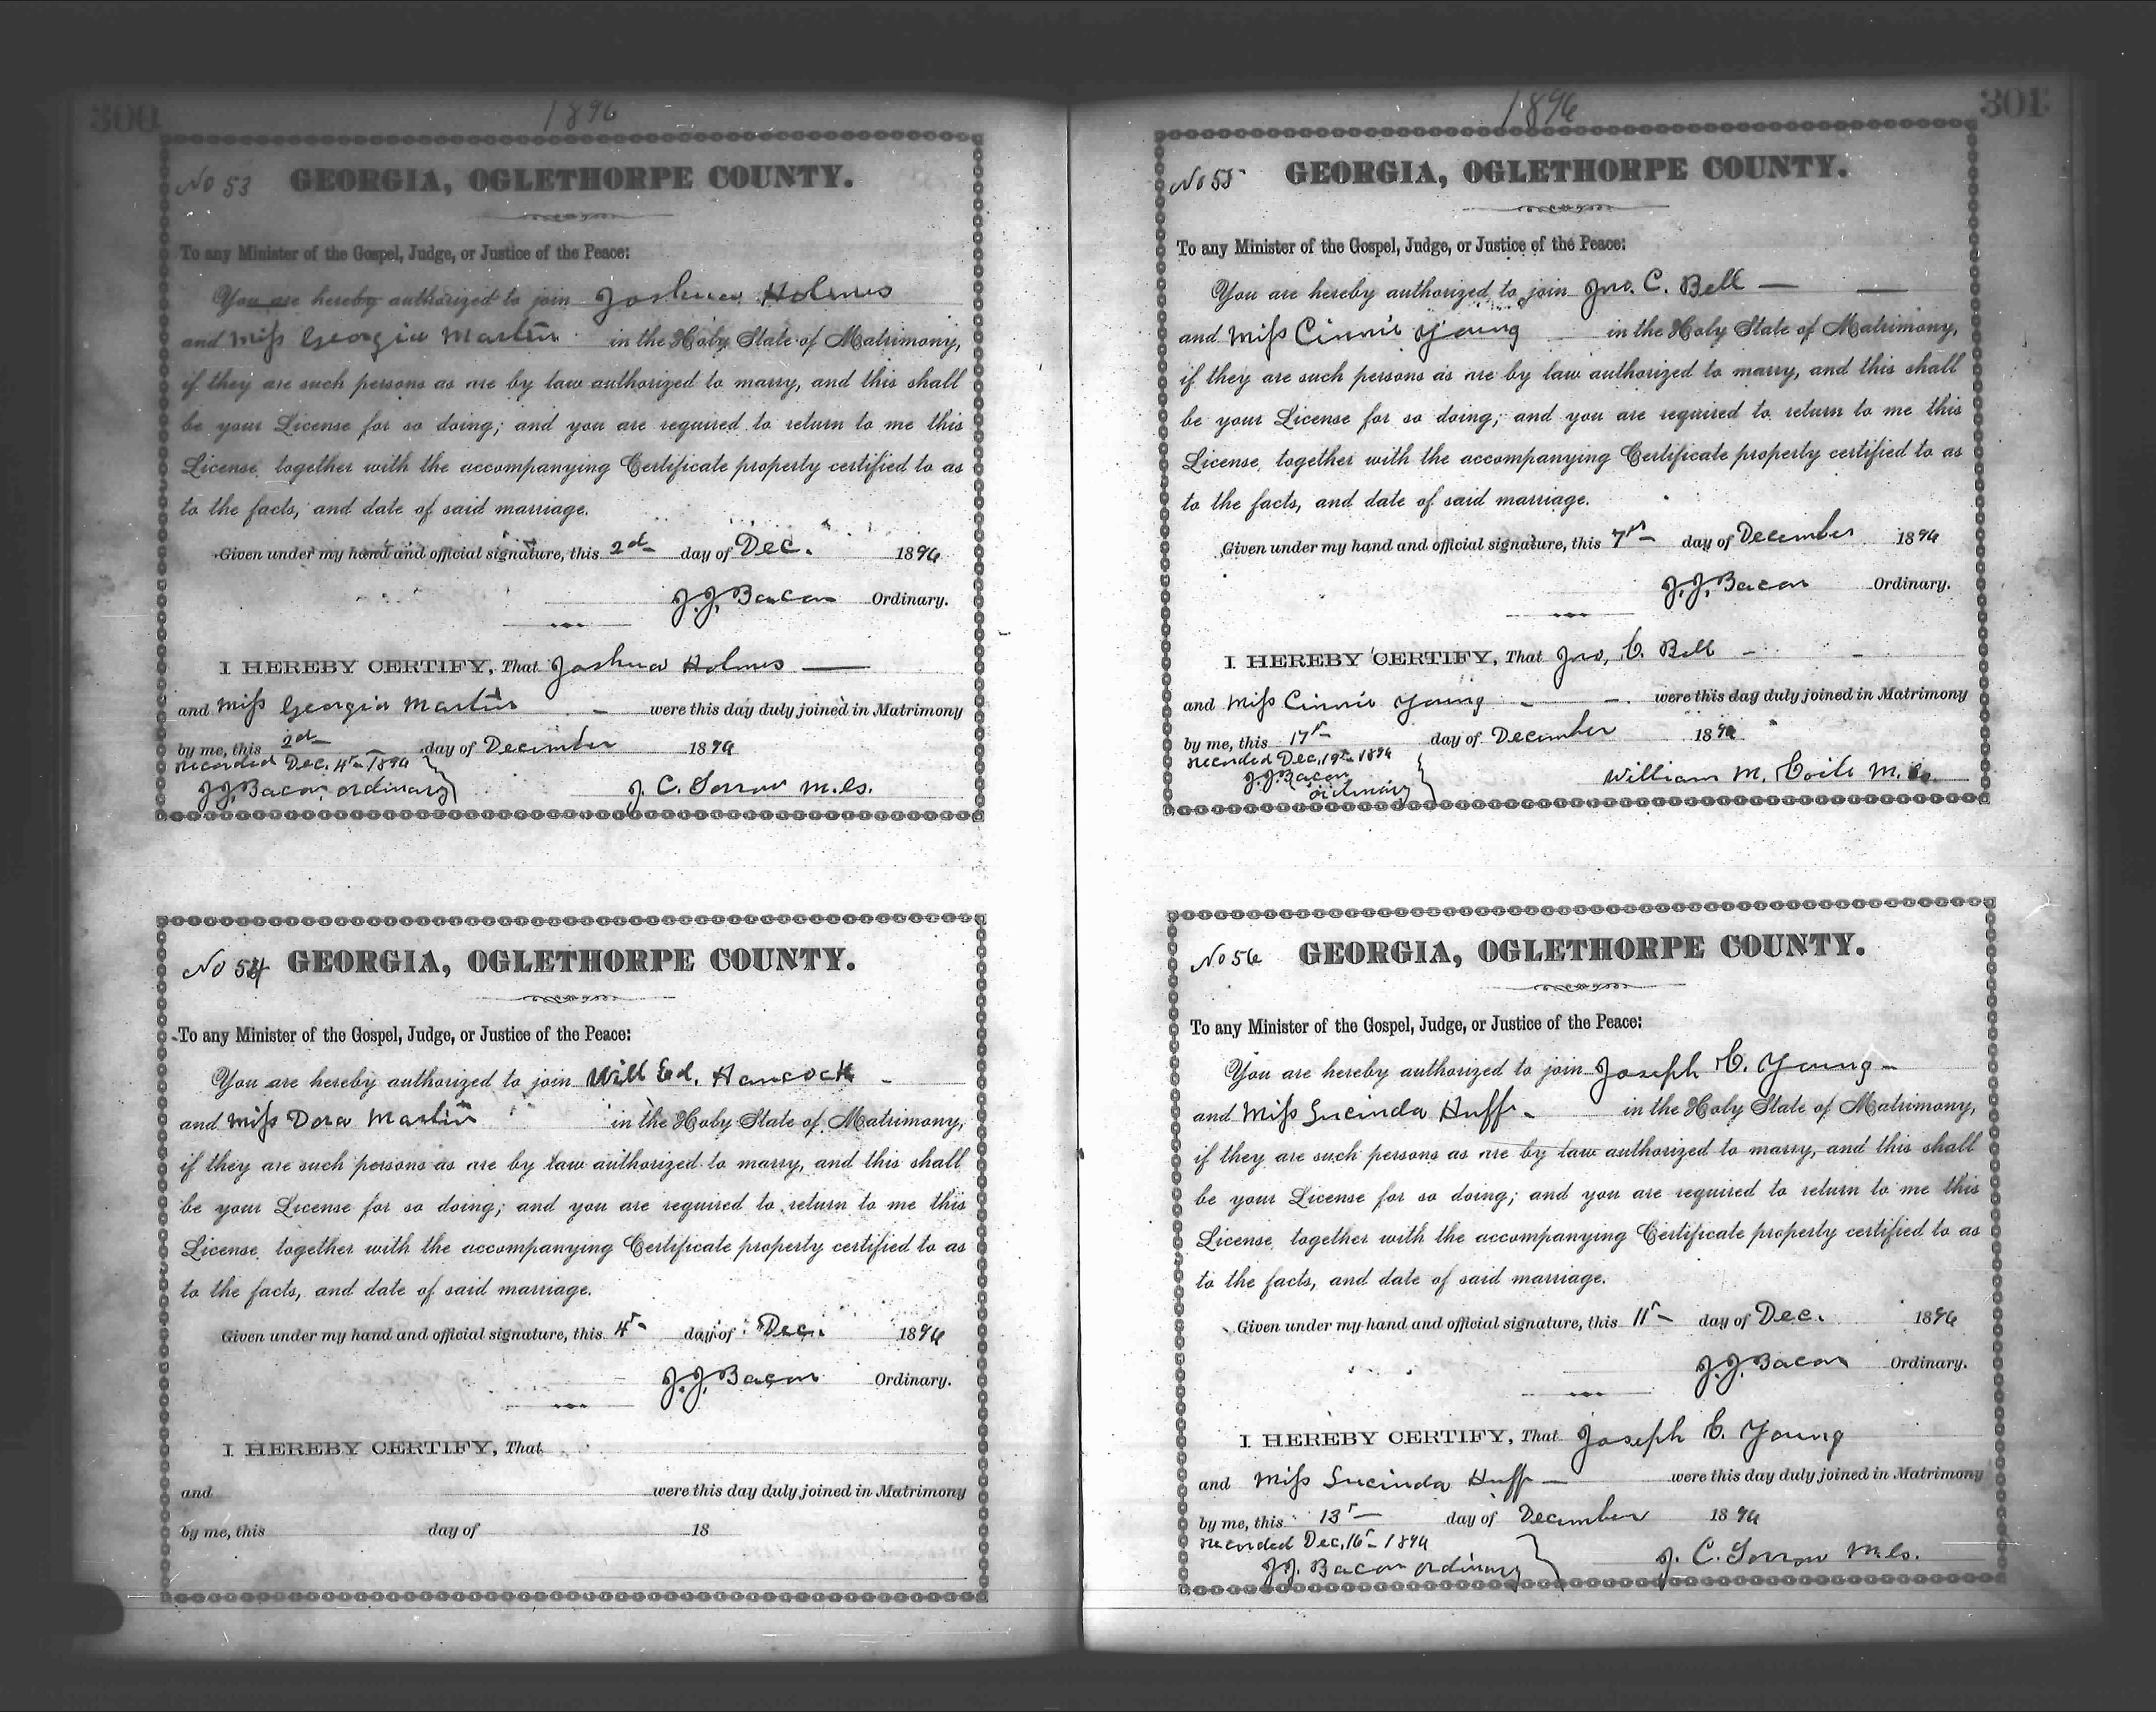 300
1896
No 53 GEORGIA, OGLETHORPE COUNTY.
To any Minister of the Gospel, Judge, or Justice of the Peace:
You are hereby authorized to join Joshua Holmes
and Miss Georgia Martin in the Holy State of Matrimony,
if they are such persons as are by law authorized to marry, and this shall
be your License for so doing; and you are required to return to me this
License, together with the accompanying Certificate property certified to as
to the facts, and date of said marriage.
Given under my hand and official signature, this 2d day of Dec. 1896
J. J. Bacon Ordinary.
I HEREBY CERTIFY, That Joshua Holmes
and Miss Georgia Martin were this day duly joined in Matrimony
by me, this 2d day of December 1896
recorded Dec. 4th 1896
J. J. Bacon ordinary
J. C. Sorrow M.G.
No 54 GEORGIA, OGLETHORPE COUNTY.
To any Minister of the Gospel, Judge, or Justice of the Peace:
You are hereby authorized to join Will Ed. Hancock
and Miss Dora Martin in the Holy State of Matrimony,
if they are such persons as are by law authorized to marry, and this shall
be your License for so doing; and you are required to return to me this
License, together with the accompanying Certificate property certified to as
to the facts, and date of said marriage.
Given under my hand and official signature, this 4th day of Dec. 1896
J. J. Bacon Ordinary.
I HEREBY CERTIFY, That
and were this day duly joined in Matrimony
by me, this day of 18
1896
301
No 55 GEORGIA, OGLETHORPE COUNTY.
To any Minister of the Gospel, Judge, or Justice of the Peace:
You are hereby authorized to join Jno. C. Bell
and Miss Cinnie Young in the Holy State of Matrimony,
if they are such persons as are by law authorized to marry, and this shall
be your License for so doing; and you are required to return to me this
License, together with the accompanying Certificate property certified to as
to the facts, and date of said marriage.
Given under my hand and official signature, this 7th day of December 1896
J. J. Bacon Ordinary.
I HEREBY CERTIFY, That Jno. C. Bell
and Miss Cinnie Young were this day duly joined in Matrimony
by me, this 17th day of December 1896
recorded Dec, 19th 1896
J. J. Bacon
ordinary
William M. Coile M.G.
No 56 GEORGIA, OGLETHORPE COUNTY.
To any Minister of the Gospel, Judge, or Justice of the Peace:
You are hereby authorized to join Joseph C. Young
and Miss Lucinda Huff in the Holy State of Matrimony,
if they are such persons as are by law authorized to marry, and this shall
be your License for so doing; and you are required to return to me this
License, together with the accompanying Certificate property certified to as
to the facts, and date of said marriage.
Given under my hand and official signature, this 11th day of Dec. 1896
J. J. Bacon Ordinary.
I HEREBY CERTIFY, That Joseph C. Young
and Miss Lucinda Huff were this day duly joined in Matrimony
by me, this 13th day of December 1896
recorded Dec, 16th 1896
J. J. Bacon ordinary
J. C. Sorrow M.G.